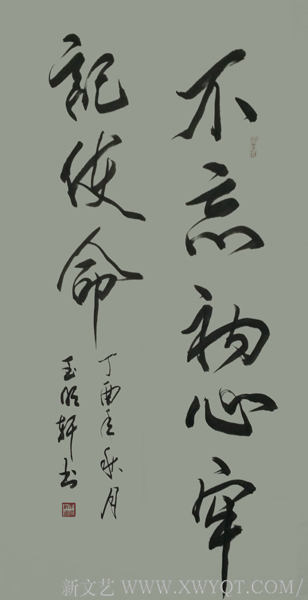 不忘初心牢
記使命
丁酉年秋月
书
新文艺 WWW.XWYQT.COM/